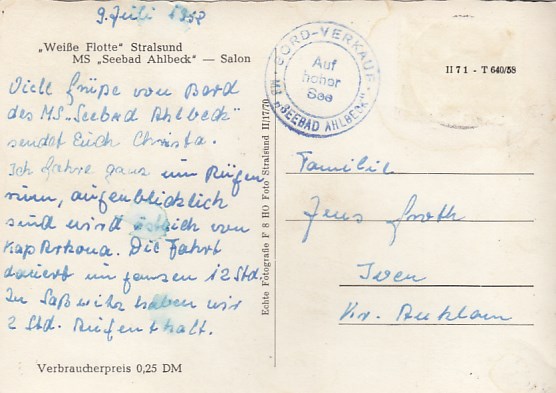 9. Juli 1958
„Weiße Flotte" Stralsund
MS „Seebad Ahlbeck" — Salon
Viele Grüße von Bord
des MS „Seebad Ahlbeck"
sendet Euch Christa.
Ich fahre ganz um Rügen
rum, augenblicklich
sind wird östlich von
Kap Arkona. Die Fahrt
dauert im ganzen 12 Std.
In Saßnitz haben wir
2 Std. Aufenthalt.
Verbraucherpreis 0,25 DM
Echte Fotografie F 8 HO Foto Stralsund II/17/70
BORD-VERKAUF
Auf
hoher
See
MS „SEEBAD AHLBECK"
II 7 1 - T 640/58
Familie
Jens Groth
Iven
Kr. Anklam